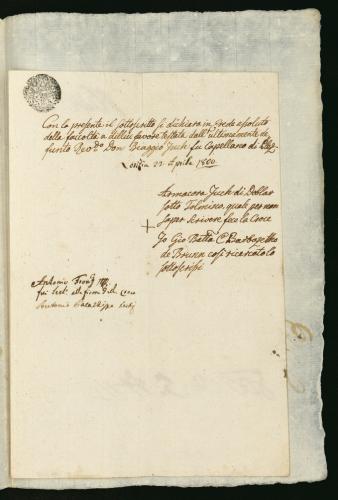 Con la presente il sottoscritto si dichiara in erede assoluto
della faccoltà a di lui favore testata dall'ultimamente de
funto Revdo Don Biaggio Juch fu Capellano di
22 Aprile 1800
Armacora Juch di Dollar
sotto Tolmino, quale per non
saper scrivere fece la Croce
+
Io Gio Batta C Barbasetti
de Brunn così ricercato lo
sottoscrissi
Antonio
fui test. alla firma della Croce
Antonio